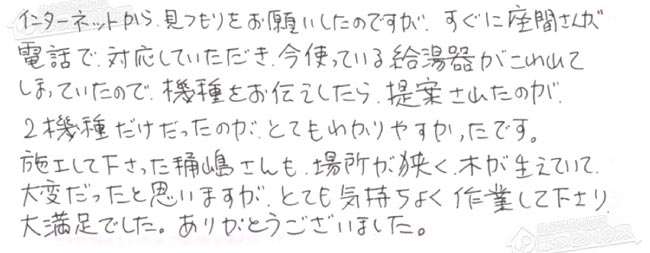 インターネットから、見つもりをお願いしたのですが、すぐに座間さんが
電話で、対応していただき、今使っている給湯器がこわれて
しまっていたので、機種をお伝えしたら、提案されたのが、
2機種だけだったのが、とてもわかりやすかったです。
施工して下さった桶嶋さんも、場所が狭く、木が生えていて、
大変だったと思いますが、とても気持ちよく作業して下さり
大満足でした。ありがとうございました。